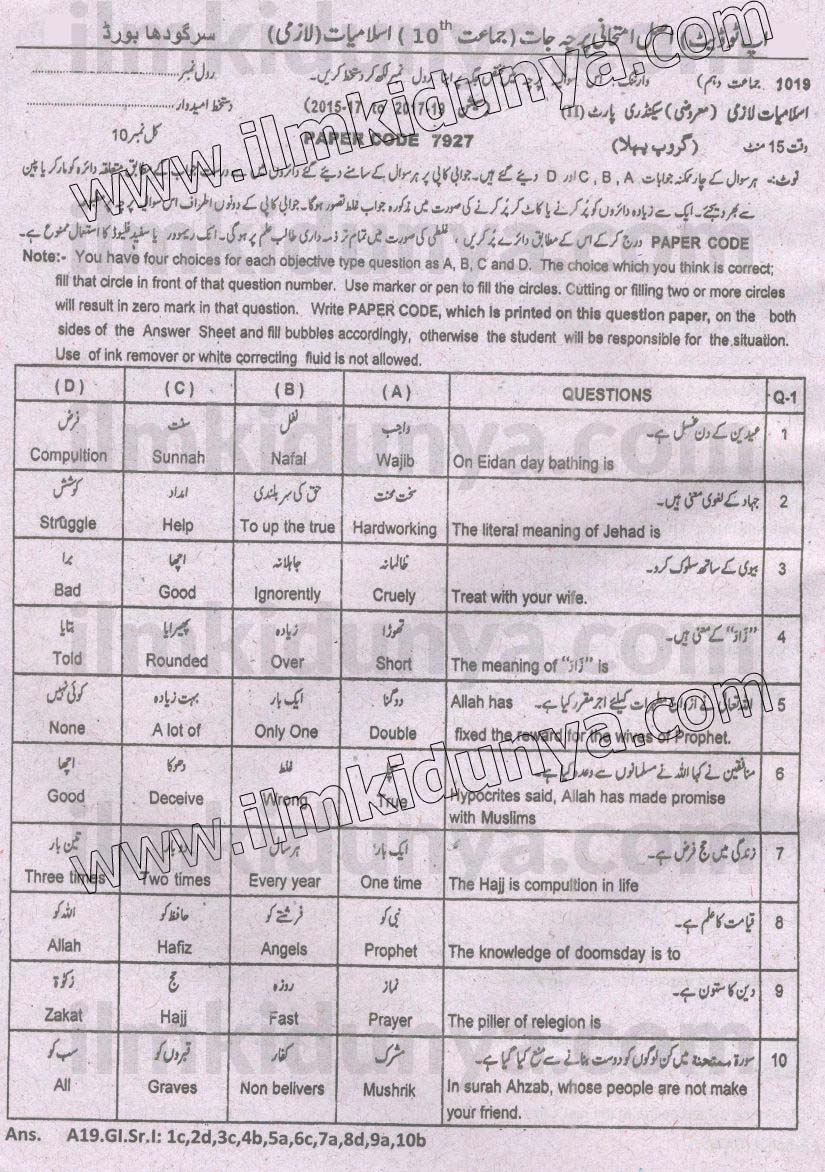 اپ ٹو ڈیٹ اصلی امتحانی پرچہ جات (جماعت 10th) اسلامیات (لازمی) سرگودھا بورڈ
1019 جماعت دہم) وارننگ:۔ اس سوالیہ پرچہ میں اپنا رول نمبر لکھ کر دستخط کریں۔ رول نمبر
اسلامیات لازمی (معروضی) سیکنڈری پارٹ (II) 2017-19 2015-17 دستخط امیدوار
وقت 15 منٹ (گروپ پہلا) PAPER CODE 7927 کل نمبر 10
نوٹ:۔ ہر سوال کے چار ممکنہ جوابات A ,B ,C اور D دیئے گئے ہیں۔ جوابی کاپی پر ہر سوال کے سامنے دیئے گئے دائروں میں سے درست جواب کے مطابق متعلقہ دائرہ کو مارکر یا پین
سے بھر دیجئے۔ ایک سے زیادہ دائروں کو پُر کرنے یا کاٹ کر پُر کرنے کی صورت میں مذکورہ جواب غلط تصور ہوگا۔ جوابی کاپی کے دونوں اطراف اس سوالیہ
PAPER CODE درج کر کے اس کے مطابق دائرے پُر کریں، غلطی کی صورت میں تمام تر ذمہ داری طالب علم پر ہوگی۔ انک ریموور یا سفید فلیوڈ کا استعمال ممنوع ہے۔
Note:- You have four choices for each objective type question as A, B, C and D. The choice which you think is correct;
fill that circle in front of that question number. Use marker or pen to fill the circles. Cutting or filling two or more circles
will result in zero mark in that question. Write PAPER CODE, which is printed on this question paper, on the both
sides of the Answer Sheet and fill bubbles accordingly, otherwise the student will be responsible for the situation.
Use of ink remover or white correcting fluid is not allowed.
(D) (C) (B) (A) QUESTIONS Q-1
فرض سنت نفل واجب عیدین کے دن غسل ہے۔ 1
Compultion Sunnah Nafal Wajib On Eidan day bathing is
کوشش امداد حق کی سربلندی سخت محنت جہاد کے لغوی معنی ہیں۔ 2
Struggle Help To up the true Hardworking The literal meaning of Jehad is
برا اچھا جاہلانہ ظالمانہ بیوی کے ساتھ سلوک کرو۔ 3
Bad Good Ignorently Cruely Treat with your wife.
بتایا پھیرایا زیادہ تھوڑا "زَادَ" کے معنی ہیں۔ 4
Told Rounded Over Short The meaning of "زَادَ" is
کوئی نہیں بہت زیادہ ایک بار دوگنا اللہ تعالیٰ نے ازواج مطہرات کیلئے اجر مقرر کیا ہے۔ Allah has 5
None A lot of Only One Double fixed the reward for the wives of Prophet.
اچھا دھوکا غلط منافقین نے کہا اللہ نے مسلمانوں سے وعدہ کیا ہے۔ 6
Good Deceive Wrong True Hypocrites said, Allah has made promise
with Muslims
تین بار دو بار ہر سال ایک بار زندگی میں حج فرض ہے۔ 7
Three times Two times Every year One time The Hajj is compultion in life
اللہ کو حافظ کو فرشتے کو نبی کو قیامت کا علم ہے۔ 8
Allah Hafiz Angels Prophet The knowledge of doomsday is to
زکوٰۃ حج روزہ نماز دین کا ستون ہے۔ 9
Zakat Hajj Fast Prayer The piller of relegion is
سب کو قبروں کو کفار مشرک سورۃ ممتحنۃ میں کن لوگوں کو دوست بنانے سے منع کیا گیا ہے۔ 10
All Graves Non belivers Mushrik In surah Ahzab, whose people are not make
your friend.
Ans. A19.GI.Sr.I: 1c,2d,3c,4b,5a,6c,7a,8d,9a,10b
www.ilmkidunya.com
www.ilmkidunya.com